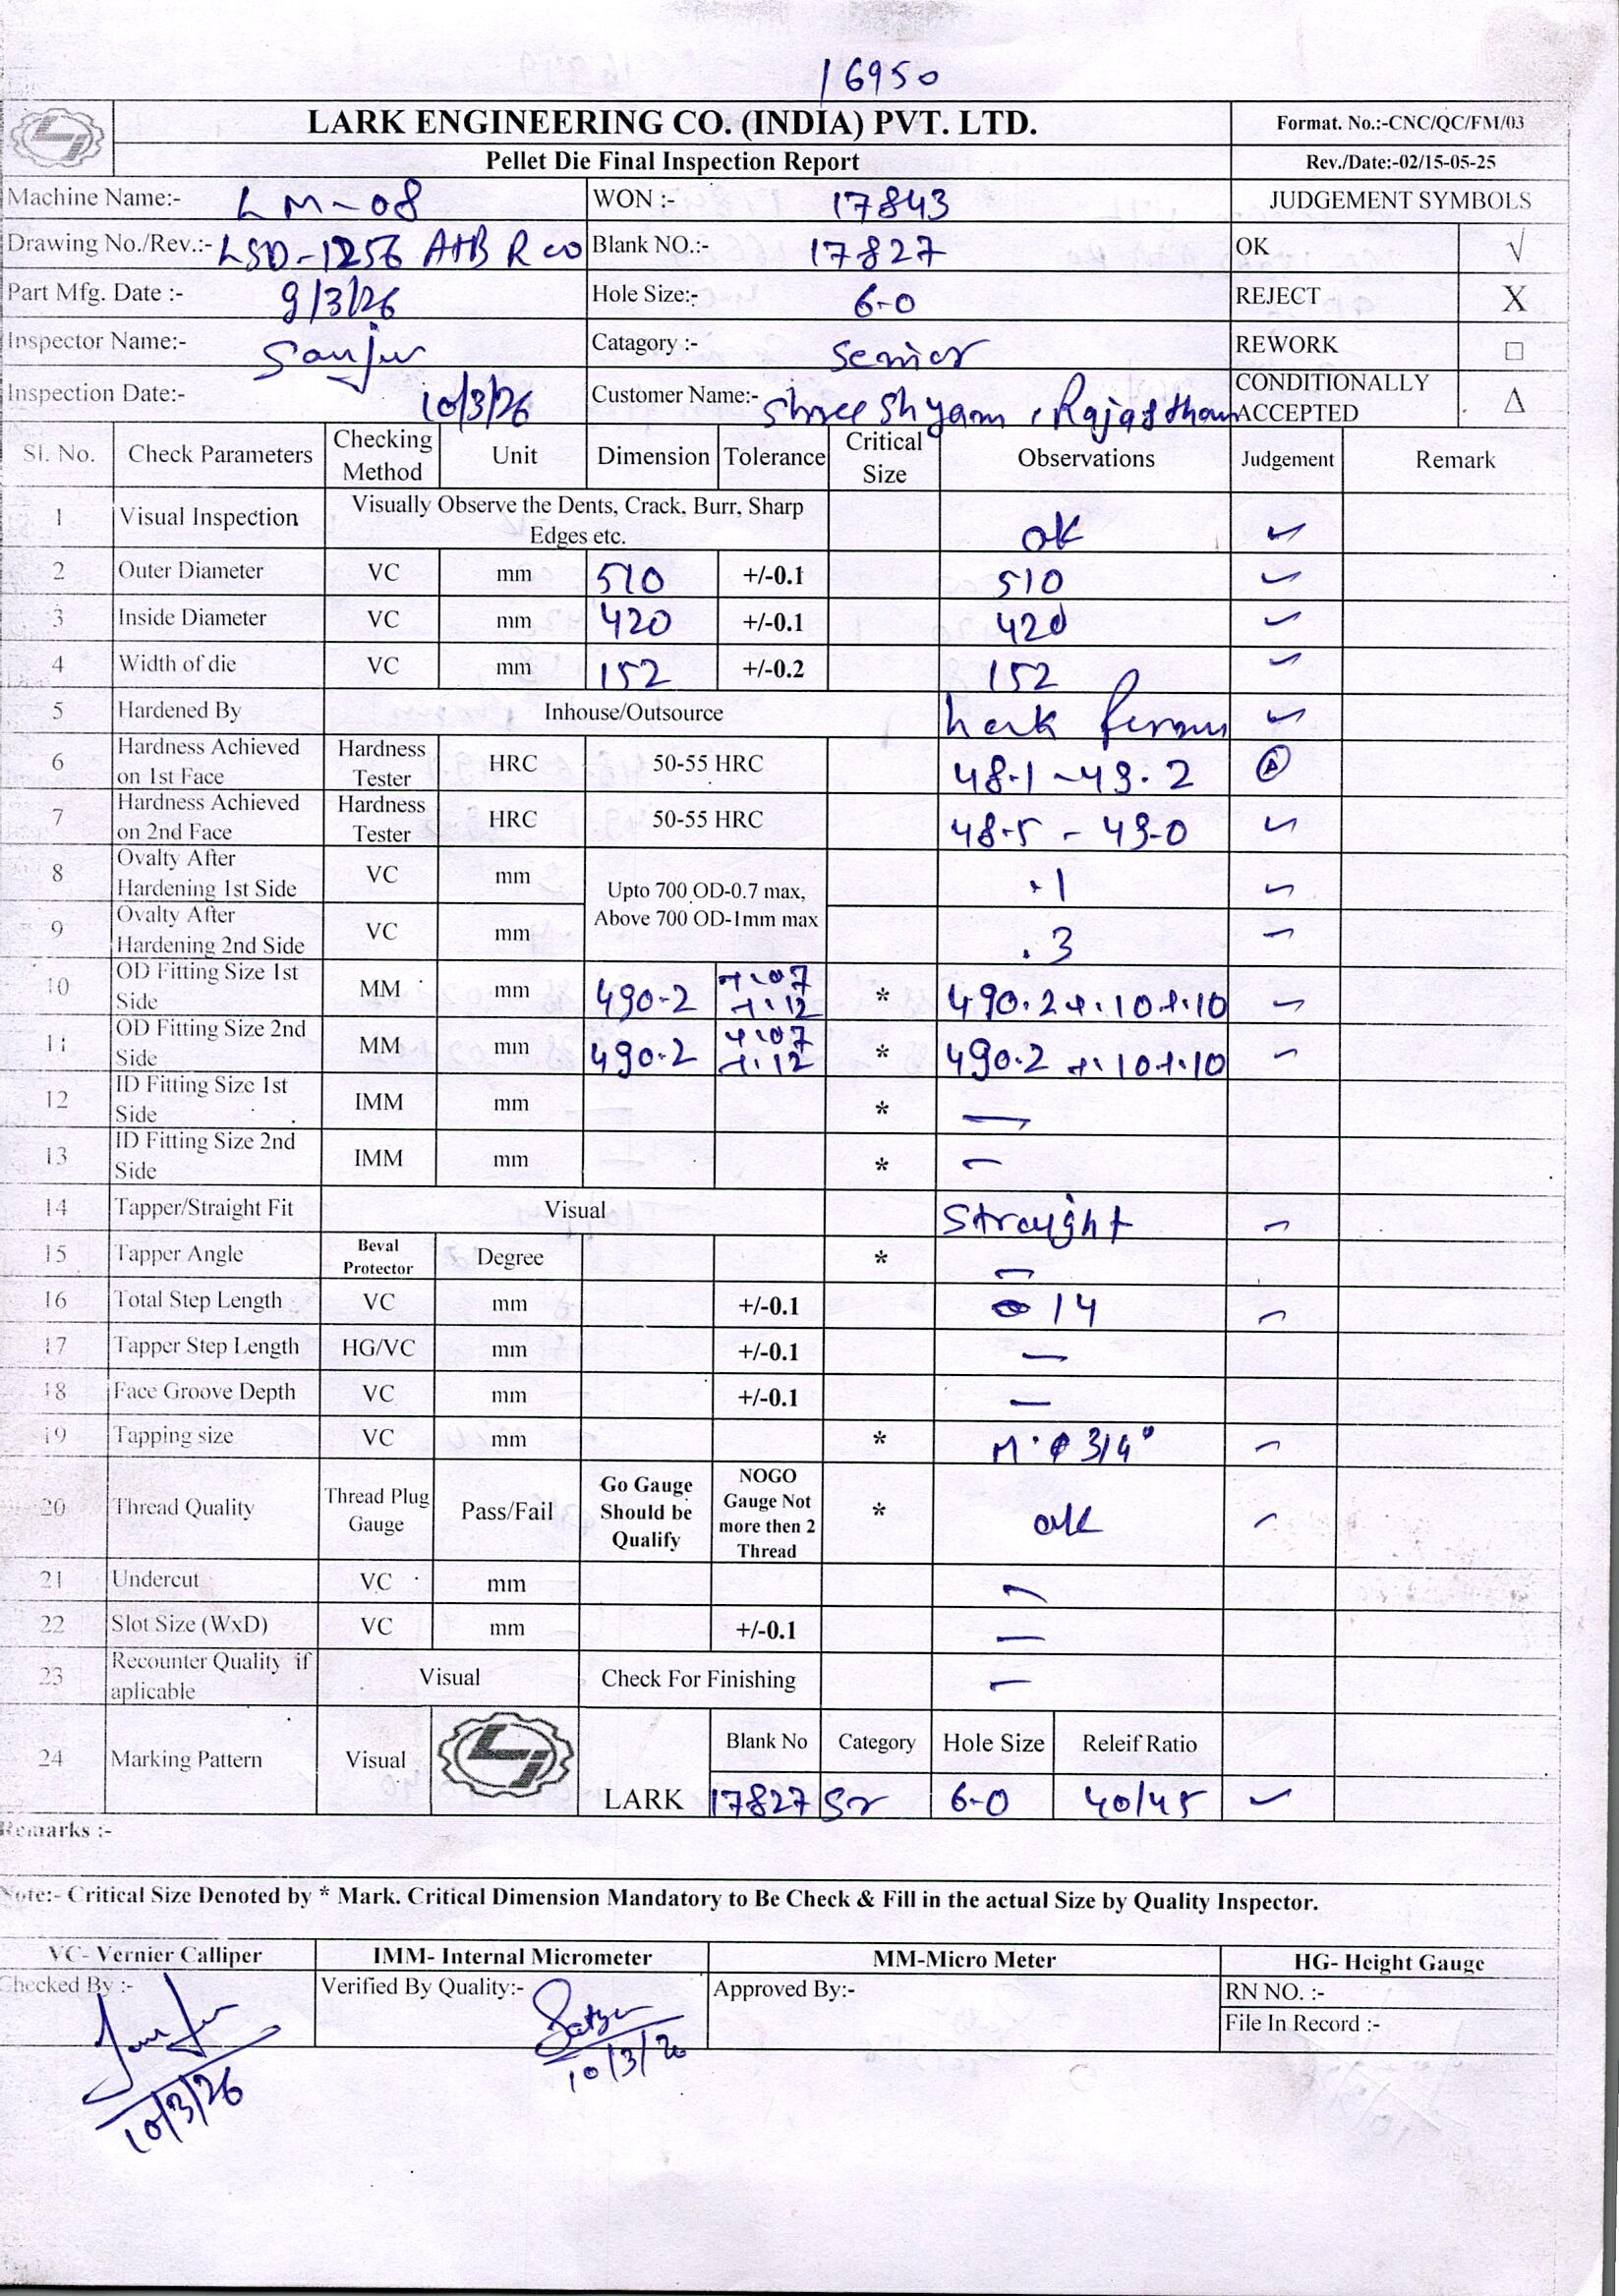 16950
LARK ENGINEERING CO. (INDIA) PVT. LTD. Format. No.:-CNC/QC/FM/03
Pellet Die Final Inspection Report Rev./Date:-02/15-05-25
Machine Name:- LM-08 WON :- 17843 JUDGEMENT SYMBOLS
Drawing No./Rev.:- LSD-1256 A+B R00 Blank NO.:- 17827 OK √
Part Mfg. Date :- 9/3/26 Hole Size:- 6-0 REJECT X
Inspector Name:- Sanju Catagory :- Senior REWORK □
Inspection Date:- 10/3/26 Customer Name:- Shree Shyam, Rajasthan CONDITIONALLY ACCEPTED Δ
Sl. No. Check Parameters Checking Method Unit Dimension Tolerance Critical Size Observations Judgement Remark
1 Visual Inspection Visually Observe the Dents, Crack, Burr, Sharp Edges etc. ok ✓
2 Outer Diameter VC mm 510 +/-0.1 510 ✓
3 Inside Diameter VC mm 420 +/-0.1 420 ✓
4 Width of die VC mm 152 +/-0.2 152 ✓
5 Hardened By Inhouse/Outsource ✓
6 Hardness Achieved on 1st Face Hardness Tester HRC 50-55 HRC 48.1 - 49.2 Δ
7 Hardness Achieved on 2nd Face Hardness Tester HRC 50-55 HRC 48.5 - 49-0 ✓
8 Ovalty After Hardening 1st Side VC mm Upto 700 OD-0.7 max, Above 700 OD-1mm max .1 ✓
9 Ovalty After Hardening 2nd Side VC mm .3 ✓
10 OD Fitting Size 1st Side MM mm 490.2 +.07 +.12 * 490.2 +.10 +.10 ✓
11 OD Fitting Size 2nd Side MM mm 490.2 +.07 +.12 * 490.2 +.10 +.10 ✓
12 ID Fitting Size 1st Side IMM mm * —
13 ID Fitting Size 2nd Side IMM mm * —
14 Tapper/Straight Fit Visual Straight ✓
15 Tapper Angle Beval Protector Degree * —
16 Total Step Length VC mm +/-0.1 14 ✓
17 Tapper Step Length HG/VC mm +/-0.1 —
18 Face Groove Depth VC mm +/-0.1 —
19 Tapping size VC mm * 3/4" ✓
20 Thread Quality Thread Plug Gauge Pass/Fail Go Gauge Should be Qualify NOGO Gauge Not more then 2 Thread * ok ✓
21 Undercut VC mm —
22 Slot Size (WxD) VC mm +/-0.1 —
23 Recounter Quality if aplicable Visual Check For Finishing —
24 Marking Pattern Visual LARK Blank No Category Hole Size Releif Ratio
17827 Sr 6-0 40/45 ✓
Remarks :-
Note:- Critical Size Denoted by * Mark. Critical Dimension Mandatory to Be Check & Fill in the actual Size by Quality Inspector.
VC- Vernier Calliper IMM- Internal Micrometer MM-Micro Meter HG- Height Gauge
Checked By :- Verified By Quality:- Approved By:- RN NO. :-
File In Record :-
10/3/26 10/3/26